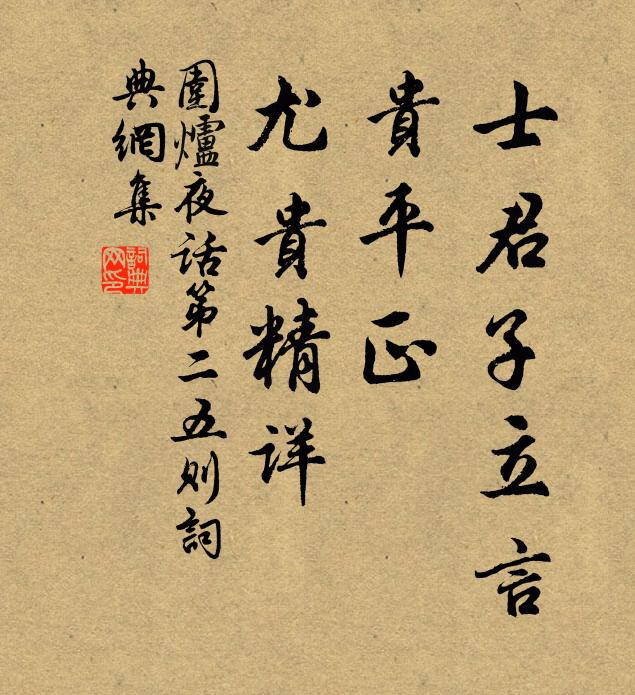 士君子立言
貴平正
尤貴精詳
圍爐夜话第二五则詞
典網集
詞典
网印